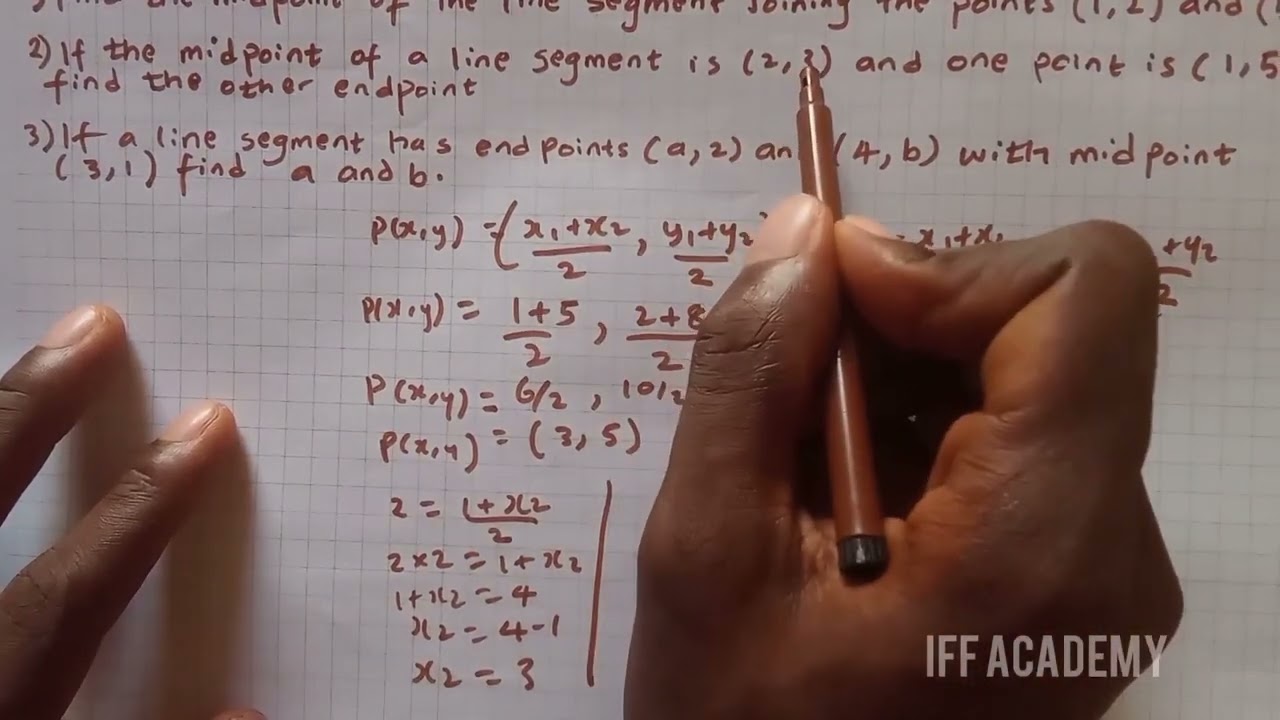 midpoint of the line segment joining the points (1,2) and (
2) If the midpoint of a line segment is (2,3) and one point is (1,5
find the other endpoint
3) If a line segment has endpoints (a,2) an (4,b) with midpoint
(3,1) find a and b.
P(x,y) = (x₁+x₂/2, y₁+y₂/2 = x₁+x +y₂/2
P(x,y) = 1+5/2, 2+8/2
P(x,y) = 6/2, 10/2
P(x,y) = (3, 5)
2 = 1+x₂/2
2×2 = 1+x₂
1+x₂ = 4
x₂ = 4-1
x₂ = 3
IFF ACADEMY